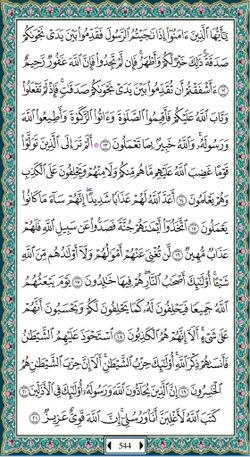 يَٰٓأَيُّهَا ٱلَّذِينَ ءَامَنُوٓا۟ إِذَا نَٰجَيْتُمُ ٱلرَّسُولَ فَقَدِّمُوا۟ بَيْنَ يَدَىْ نَجْوَىٰكُمْ
صَدَقَةً ۚ ذَٰلِكَ خَيْرٌ لَّكُمْ وَأَطْهَرُ ۚ فَإِن لَّمْ تَجِدُوا۟ فَإِنَّ ٱللَّهَ غَفُورٌ رَّحِيمٌ
١٢ ءَأَشْفَقْتُمْ أَن تُقَدِّمُوا۟ بَيْنَ يَدَىْ نَجْوَىٰكُمْ صَدَقَٰتٍ ۚ فَإِذْ لَمْ تَفْعَلُوا۟
وَتَابَ ٱللَّهُ عَلَيْكُمْ فَأَقِيمُوا۟ ٱلصَّلَوٰةَ وَءَاتُوا۟ ٱلزَّكَوٰةَ وَأَطِيعُوا۟ ٱللَّهَ
وَرَسُولَهُۥ ۚ وَٱللَّهُ خَبِيرٌۢ بِمَا تَعْمَلُونَ ١٣ أَلَمْ تَرَ إِلَى ٱلَّذِينَ تَوَلَّوْا۟
قَوْمًا غَضِبَ ٱللَّهُ عَلَيْهِم مَّا هُم مِّنكُمْ وَلَا مِنْهُمْ وَيَحْلِفُونَ عَلَى ٱلْكَذِبِ
وَهُمْ يَعْلَمُونَ ١٤ أَعَدَّ ٱللَّهُ لَهُمْ عَذَابًا شَدِيدًا ۖ إِنَّهُمْ سَآءَ مَا كَانُوا۟
يَعْمَلُونَ ١٥ ٱتَّخَذُوٓا۟ أَيْمَٰنَهُمْ جُنَّةً فَصَدُّوا۟ عَن سَبِيلِ ٱللَّهِ فَلَهُمْ
عَذَابٌ مُّهِينٌ ١٦ لَّن تُغْنِىَ عَنْهُمْ أَمْوَٰلُهُمْ وَلَآ أَوْلَٰدُهُم مِّنَ ٱللَّهِ
شَيْـًٔا ۚ أُو۟لَٰٓئِكَ أَصْحَٰبُ ٱلنَّارِ ۖ هُمْ فِيهَا خَٰلِدُونَ ١٧ يَوْمَ يَبْعَثُهُمُ
ٱللَّهُ جَمِيعًا فَيَحْلِفُونَ لَهُۥ كَمَا يَحْلِفُونَ لَكُمْ ۖ وَيَحْسَبُونَ أَنَّهُمْ
عَلَىٰ شَىْءٍ ۚ أَلَآ إِنَّهُمْ هُمُ ٱلْكَٰذِبُونَ ١٨ ٱسْتَحْوَذَ عَلَيْهِمُ ٱلشَّيْطَٰنُ
فَأَنسَىٰهُمْ ذِكْرَ ٱللَّهِ ۚ أُو۟لَٰٓئِكَ حِزْبُ ٱلشَّيْطَٰنِ ۚ أَلَآ إِنَّ حِزْبَ ٱلشَّيْطَٰنِ هُمُ
ٱلْخَٰسِرُونَ ١٩ إِنَّ ٱلَّذِينَ يُحَآدُّونَ ٱللَّهَ وَرَسُولَهُۥٓ أُو۟لَٰٓئِكَ فِى ٱلْأَذَلِّينَ ٢٠
كَتَبَ ٱللَّهُ لَأَغْلِبَنَّ أَنَا۠ وَرُسُلِىٓ ۚ إِنَّ ٱللَّهَ قَوِىٌّ عَزِيزٌ ٢١
544